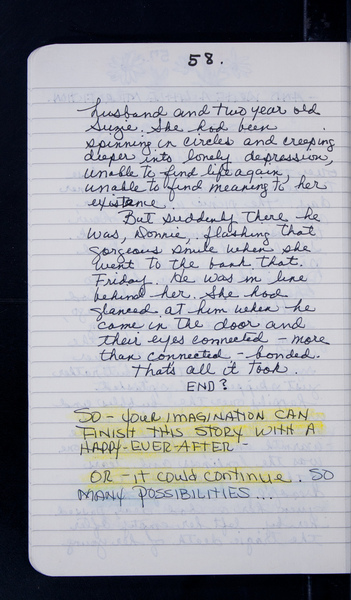 58.
husband and two year old
Suzie. She had been
spinning in circles and creeping
deeper into lonely depression,
unable to find life again,
unable to find meaning to her
existence.
But suddenly there he
was, Donnie, flashing that
gorgeous smile when she
went to the bank that
Friday. He was in line
behind her. She had
glanced at him when he
came in the door and
their eyes connected - more
than connected - bonded.
Thats all it took.
END?
SO - your IMAGINATION CAN
FINISH THIS STORY WITH A
HAPPY-EVER-AFTER -
OR - it could continue. SO
MANY POSSIBILITIES...